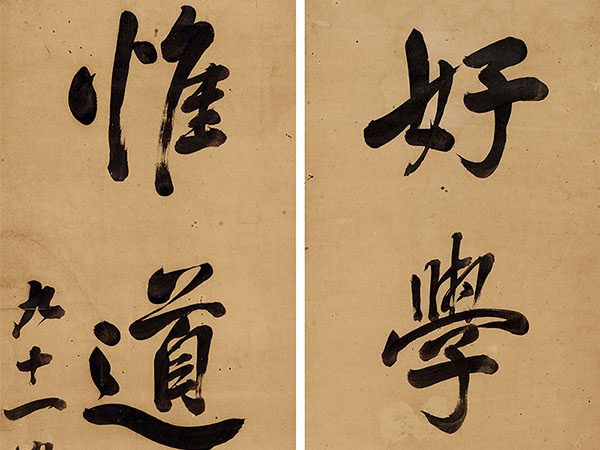 好學
惟道
九十一